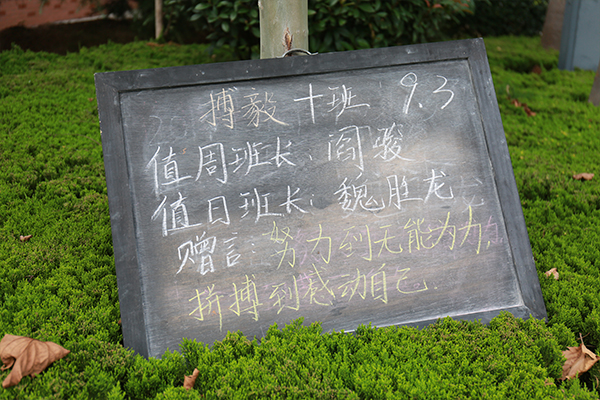 搏毅十班 9.3
值周班长：阎骏
值日班长：魏胜龙
赠言：努力到无能为力，
拼搏到感动自己．